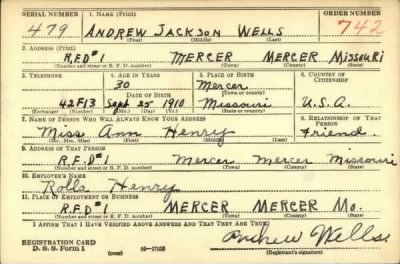 SERIAL NUMBER 1. NAME (Print) ORDER NUMBER
479 ANDREW JACKSON WELLS 742
(First) (Middle) (Last)
2. ADDRESS (Print)
R.F.D #1 MERCER MERCER MISSOURI
(Number and street or R. F. D. number) (Town) (County) (State)
3. TELEPHONE 4. AGE IN YEARS 5. PLACE OF BIRTH 6. COUNTRY OF CITIZENSHIP
30 Mercer
DATE OF BIRTH (Town or county)
42F13 Sept. 25 1910 Missouri U.S.A.
(Exchange) (Number) (Mo.) (Day) (Yr.) (State or country)
7. NAME OF PERSON WHO WILL ALWAYS KNOW YOUR ADDRESS 8. RELATIONSHIP OF THAT PERSON
Miss Ann Henry Friend
(Mr., Mrs., Miss) (First) (Middle) (Last)
9. ADDRESS OF THAT PERSON
R.F.D #1 Mercer Mercer Missouri
(Number and street or R. F. D. number) (Town) (County) (State)
10. EMPLOYER'S NAME
Rolls Henry
11. PLACE OF EMPLOYMENT OR BUSINESS
R.F.D #1 MERCER MERCER MO.
(Number and street or R. F. D. number) (Town) (County) (State)
I AFFIRM THAT I HAVE VERIFIED ABOVE ANSWERS AND THAT THEY ARE TRUE.
REGISTRATION CARD Andrew Wells
D. S. S. Form 1 (over) (Registrant's signature)